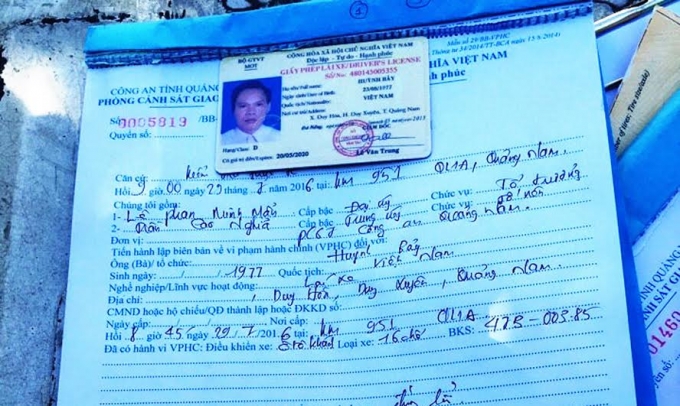 Mẫu số 29/BB-VPHC
Thông tư 34/2014/TT-BCA ngày 15-8-2014
CÔNG AN TỈNH QUẢNG
PHÒNG CẢNH SÁT GIAO
NGHĨA VIỆT NAM
phúc
Số 0005813 /BB-
Quyển số:
BỘ GTVT
MOT
CỘNG HÒA XÃ HỘI CHỦ NGHĨA VIỆT NAM
Độc lập - Tự do - Hạnh phúc
GIẤY PHÉP LÁI XE/DRIVER'S LICENSE
Số/No: 480145005355
Họ tên/Full name: HUỲNH BẢY
Ngày sinh/Date of Birth: 23/08/1977
Quốc tịch/Nationality: VIỆT NAM
Nơi cư trú/Address:
X. Duy Hòa, H. Duy Xuyên, T. Quảng Nam
GIÁM ĐỐC
Hạng/Class: D
Có giá trị đến/Expires: 20/03/2020
Lê Văn Trung
Căn cứ:
Hồi 9 giờ 00 29 / 7 / 2016 tại: km 951 QL1A, Quảng Nam.
Chúng tôi gồm:
1- Lê Phan Cấp bậc Đại úy Chức vụ: Tổ trưởng
2- Trần Cao Nghĩa Cấp bậc Trung úy Chức vụ:
Đơn vị: Công an Quảng Nam.
Tiến hành lập biên bản về vi phạm hành chính (VPHC) đối với:
Ông (Bà)/ tổ chức: Huỳnh Bảy
Sinh ngày: / / 1977 Quốc tịch: Việt Nam
Nghề nghiệp/Lĩnh vực hoạt động: Lái xe
Địa chỉ: , Duy Hòa, Duy Xuyên, Quảng Nam.
CMND hoặc hộ chiếu/QĐ thành lập hoặc ĐKKD số:
Ngày cấp: / / Nơi cấp:
Hồi 8 giờ 45 29 / 7 / 2016 tại km 951 QL1A
Đã có hành vi VPHC: Điều khiển xe: ô tô khách Loại xe: 16 chỗ BKS: 47B-003.85
TỈNH QUẢNG
SÁT GIA
01460